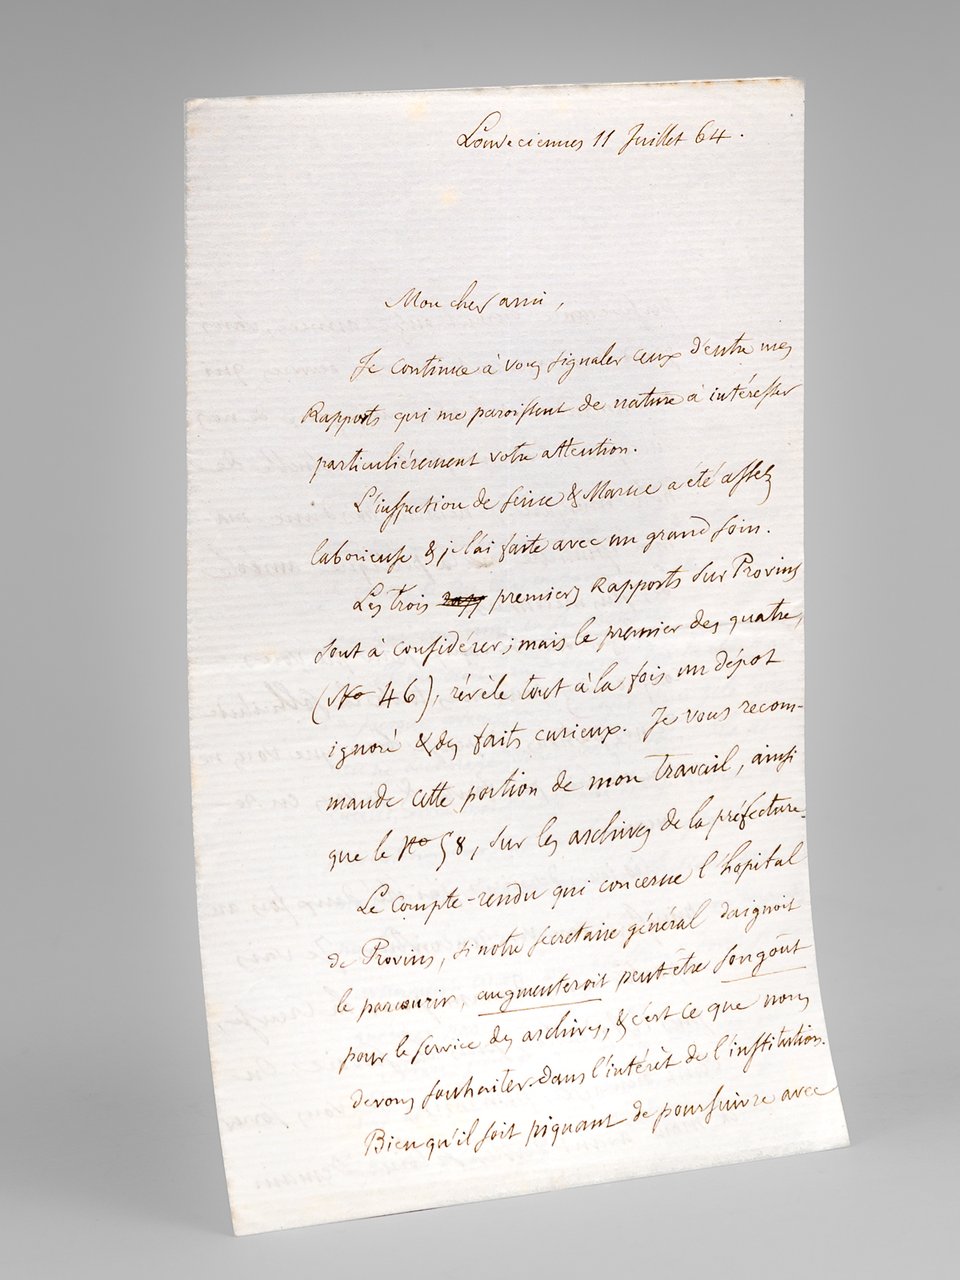 Louveciennes 11 Juillet 64.
Mon cher ami,
Je continue à vous signaler ceux d'entre mes
Rapports qui me paroissent de nature à intéresser
particulièrement votre attention.
L'inspection de Seine & Marne a été assez
laborieuse & je l'ai faite avec un grand soin.
Les trois rapp premiers Rapports sur Provins
sont à considérer; mais le premier des quatre,
(No 46), révèle tout à la fois un dépot
ignoré & des faits curieux. Je vous recom-
mande cette portion de mon travail, ainsi
que le No 58, sur les archives de la préfecture.
Le Compte-rendu qui concerne l'hopital
de Provins, si notre secretaire général daignoit
le parcourir, augmenteroit peut-être son goût
pour le service des archives, & c'est ce que nous
devons souhaiter dans l'intérêt de l'institution.
Bien qu'il soit piquant de poursuivre avec